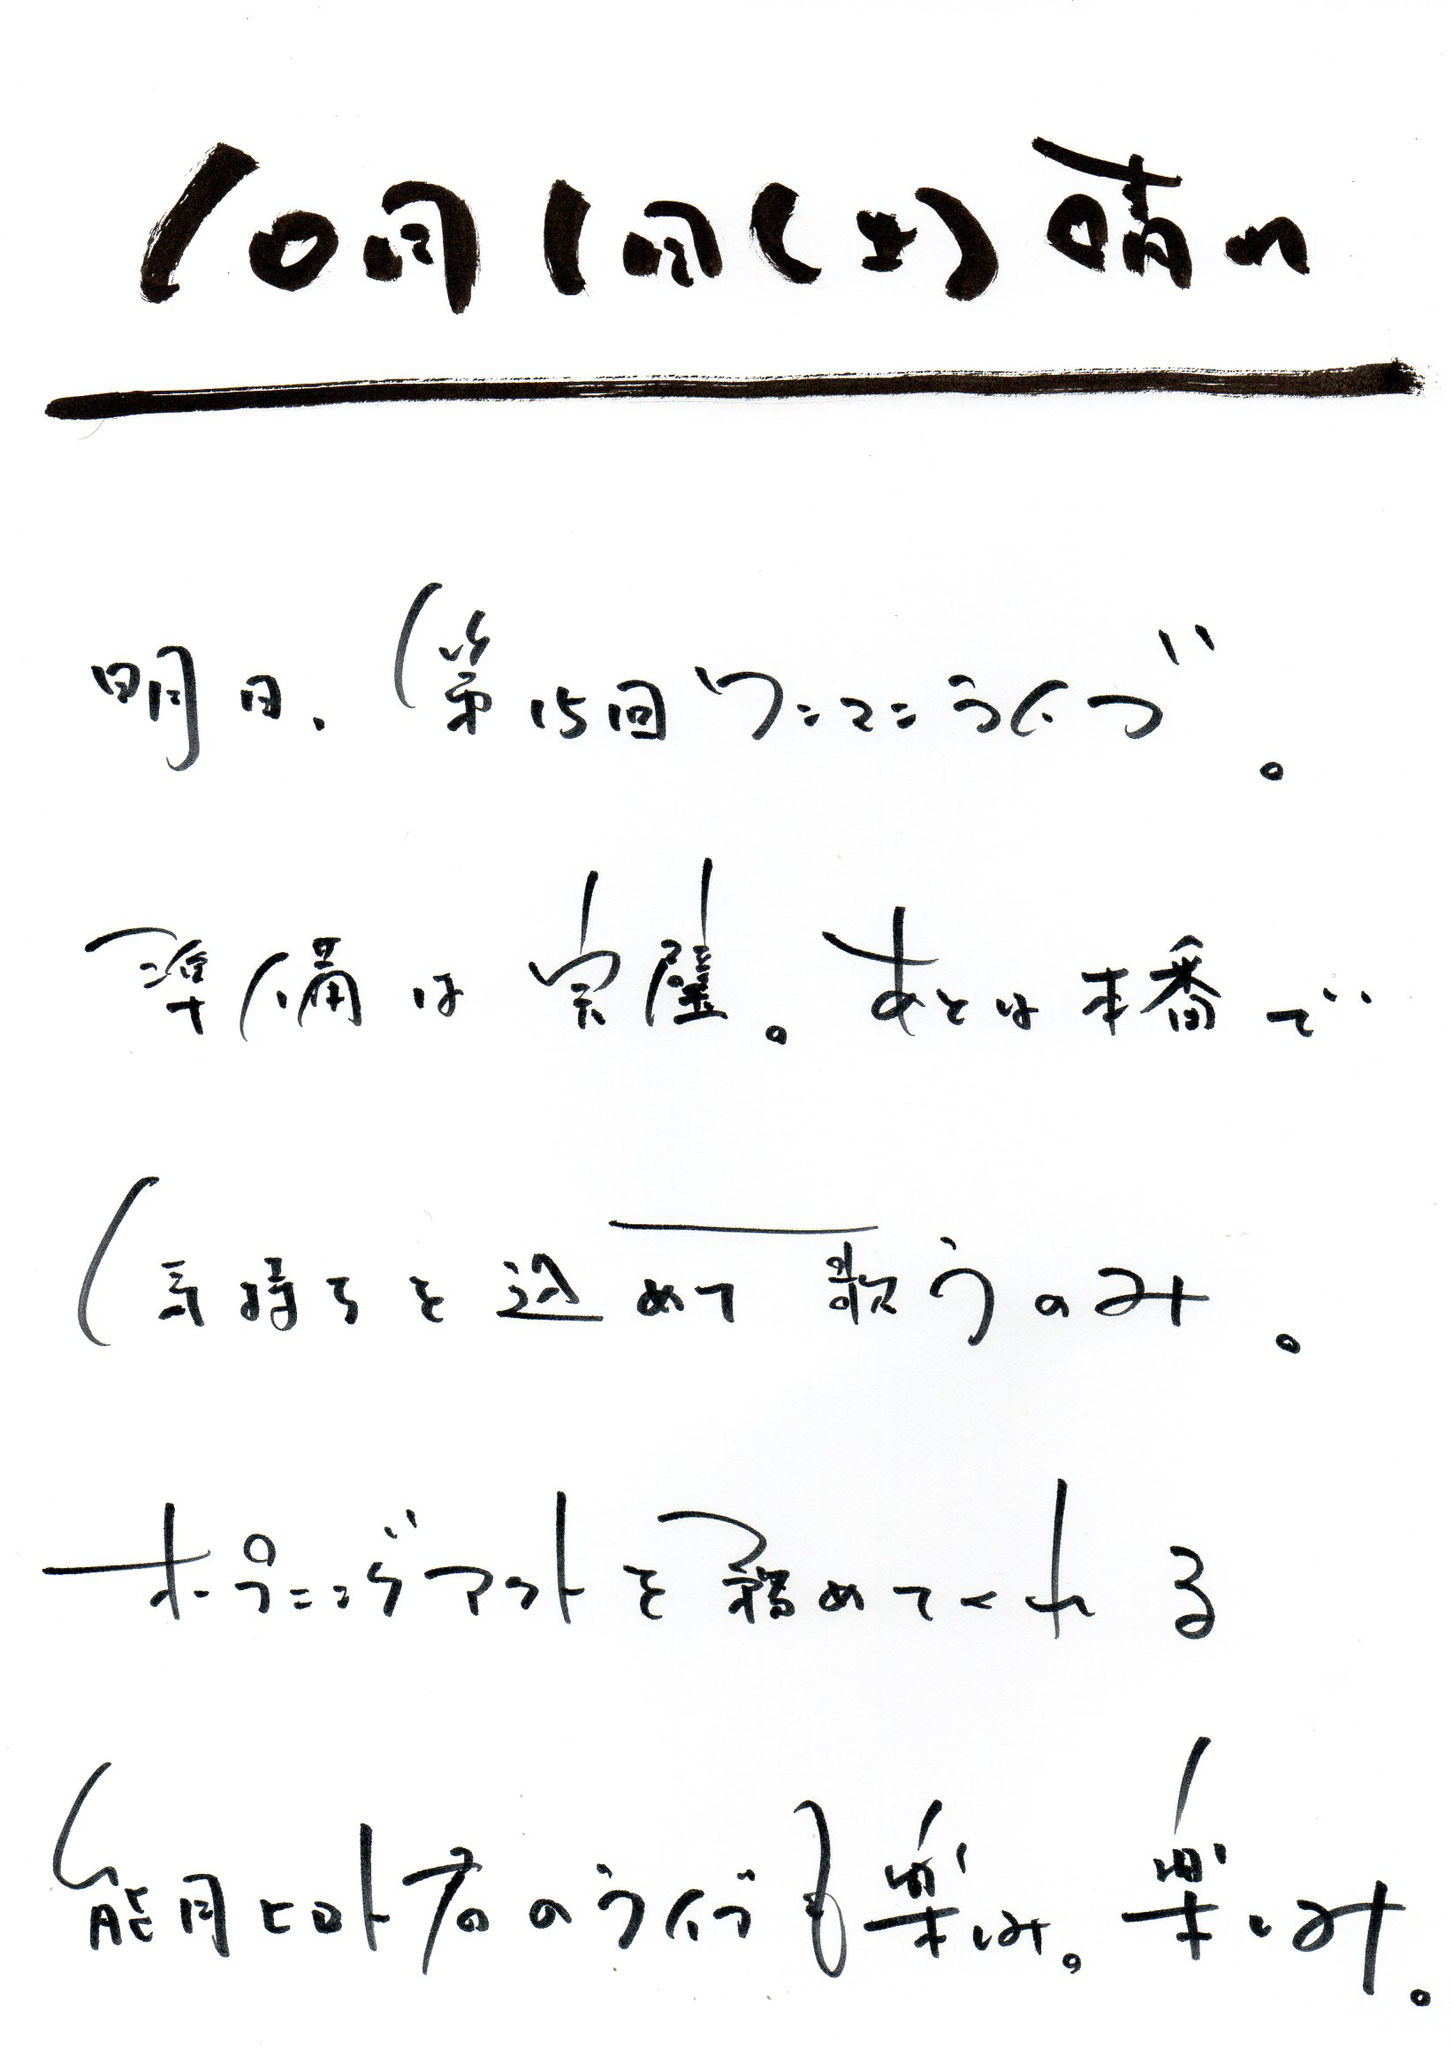 10月1日(土)晴れ
明日、第15回ワンマンライブ。
準備は完璧。あとは本番で
気持ちを込めて歌うのみ。
オープニングアクトを務めてくれる
熊月ヒロト君のライブも楽しみ。楽しみ。